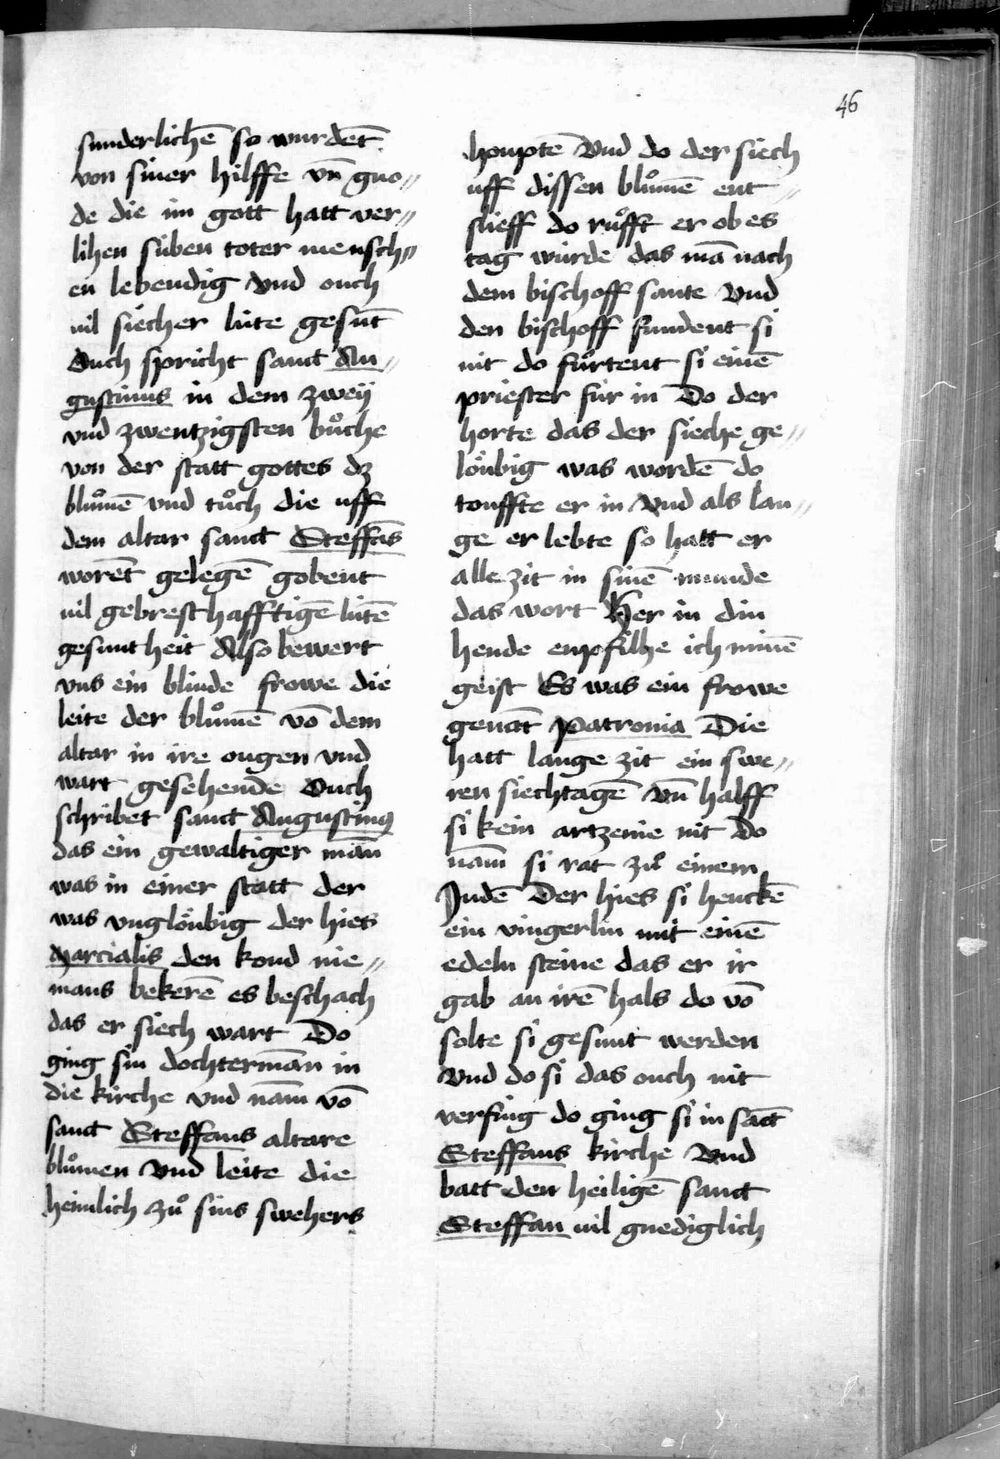 46
sunderlichē so wurdēt
von siner hilffe vn̄ gno⸗
de die im gott hatt ver⸗
lihen siben toter mensch⸗
en lebendig vnd ouch
vil siecher lúte gesūt
Ouch spricht sanct Au⸗
gustinus in dem zweÿ
vnd zwentzigsten bůche
von der statt gottes dz
blůmē vnd tůch die uff
dem altar sanct Steffās
worēt gelegē gobent
vil gebresthafftigē lútē
gesuntheit Also bewert
vns ein blinde frowe die
leite der blůmē vō dem
altar in ire ougen vnd
wart gesehende Ouch
schribet sanct Augustinꝰ
das ein gewaltiger mān
was in einer statt der
was vnglöubig der hies
Marcialis den kond nie⸗
mans bekerē es beschach
das er siech wart Do
ging sin dochtermān in
die kirche vnd nam̄ vō
sanct Steffans altare
blůmen Vnd leite die
heimlich zů sins swehers
houptē Vnd do der siech
uff dissen blůmē ent⸗
slieff do růfft er ob es
tag wúrde das mā nach
dem bischoff sante Vnd
den bischoff fundent si
nit do fůrtent si einē
priester fúr in Do der
horte das der sieche ge⸗
löubig was wordē do
touffte er in Vnd als lan⸗
ge er lebte so hatt er
alle zit in sinē munde
das wort Her in din
hende enpfilhe ich minē
geist Es was ein frowe
genāt Patronia Die
hatt lange zit ein swe⸗
ren siechtagē Vn̄ halff
si kein artzenie nit Do
nam̄ si rat zů einem
Judē Der hies si henckē
ein vingerlin mit einē
edeln steine das er ir
gab an irē hals do vō
solte si gesunt werden
Vnd do si das ouch nit
verfing do ging si in sāct
Steffans kirche Vnd
batt den heiligē sanct
Steffan vil gnediglich